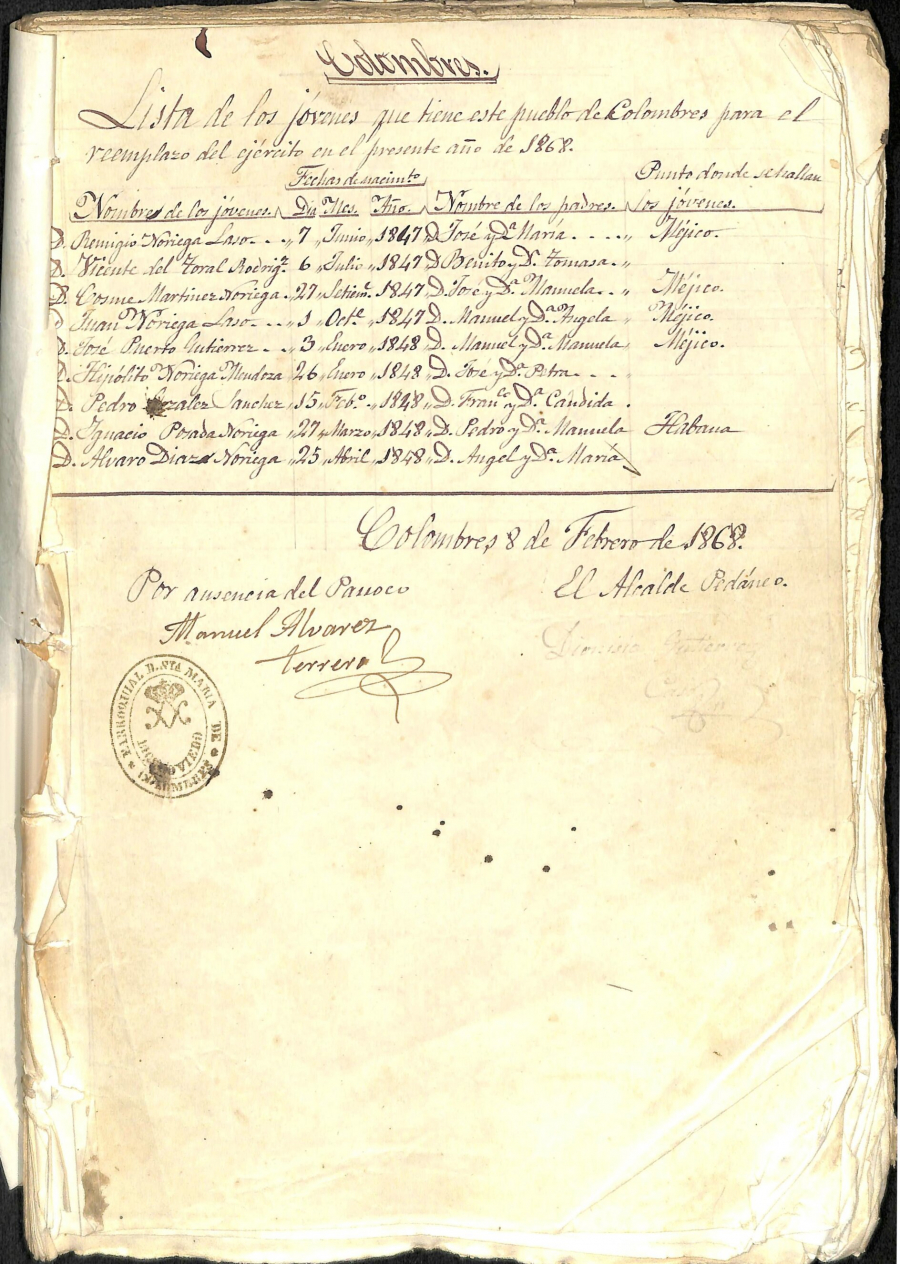 Colombres.
Lista de los jóvenes que tiene este pueblo de Colombres para el
reemplazo del ejército en el presente año de 1868.
Fechas de nacimto Punto donde se hallan
Nombres de los jóvenes. Dia Mes. Año. Nombre de los padres. los jóvenes.
D. Remigio Noriega Laso. . . „ 7 „ Junio „ 1847 „ D. José y Dª María . . . . „ Méjico.
D. Vicente del Toral Rodrigz. 6 „ Julio „ 1847 „ D. Benito y Dª Tomasa. „
D. Cosme Martinez Noriega „ 27 „ Setiemᵉ. 1847 „ D. José y Dª Manuela. . „ Méjico.
D. Juan Noriega Laso . . „ 1 „ Octᵉ „ 1847 „ D. Manuel y Dª Angela „ Méjico.
D. José Puerto Gutierrez . . „ 3 „ Enero „ 1848 „ D. Manuel y Dª Manuela „ Méjico.
D. Hipólito Noriega Mendoza 26 „ Enero „ 1848 „ D. José y Dª Petra . . . „
D. Pedro Sanchez „ 15 „ Febº. „ 1848 „ D. Franᶜᵒ y Dª Candida .
D. Ignacio Posada Noriega „ 27 „ Marzo „ 1848 „ D. Pedro y Dª Manuela Habana
D. Alvaro Diaz Noriega „ 25 „ Abril „ 1848 „ D. Angel y Dª María
Colombres 8 de Febrero de 1868.
Por ausencia del Parroco El Alcalde Pedáneo.
Manuel Alvarez Dionisio Gutierrez
Terrero
PARROQUIAL D. STA MARIA DE COLOMBRES
OVIEDO